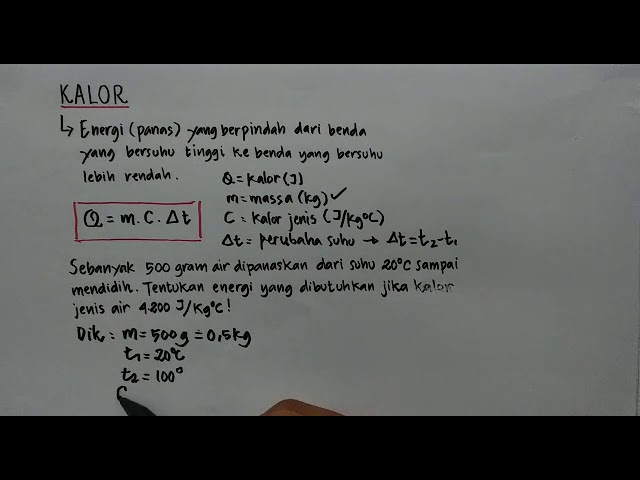 KALOR
↳ Energi (panas) yang berpindah dari benda
yang bersuhu tinggi ke benda yang bersuhu
lebih rendah.
Q = kalor (J)
m = massa (kg) ✓
C = kalor jenis (J/kg°C)
Δt = perubaha suhu → Δt = t₂ - t₁
Q = m. C. Δt
Sebanyak 500 gram air dipanaskan dari suhu 20°C sampai
mendidih. Tentukan energi yang dibutuhkan jika kalor
jenis air 4.200 J/kg°C!
Dik : m = 500 g = 0,5 kg
t₁ = 20°C
t₂ = 100°
C